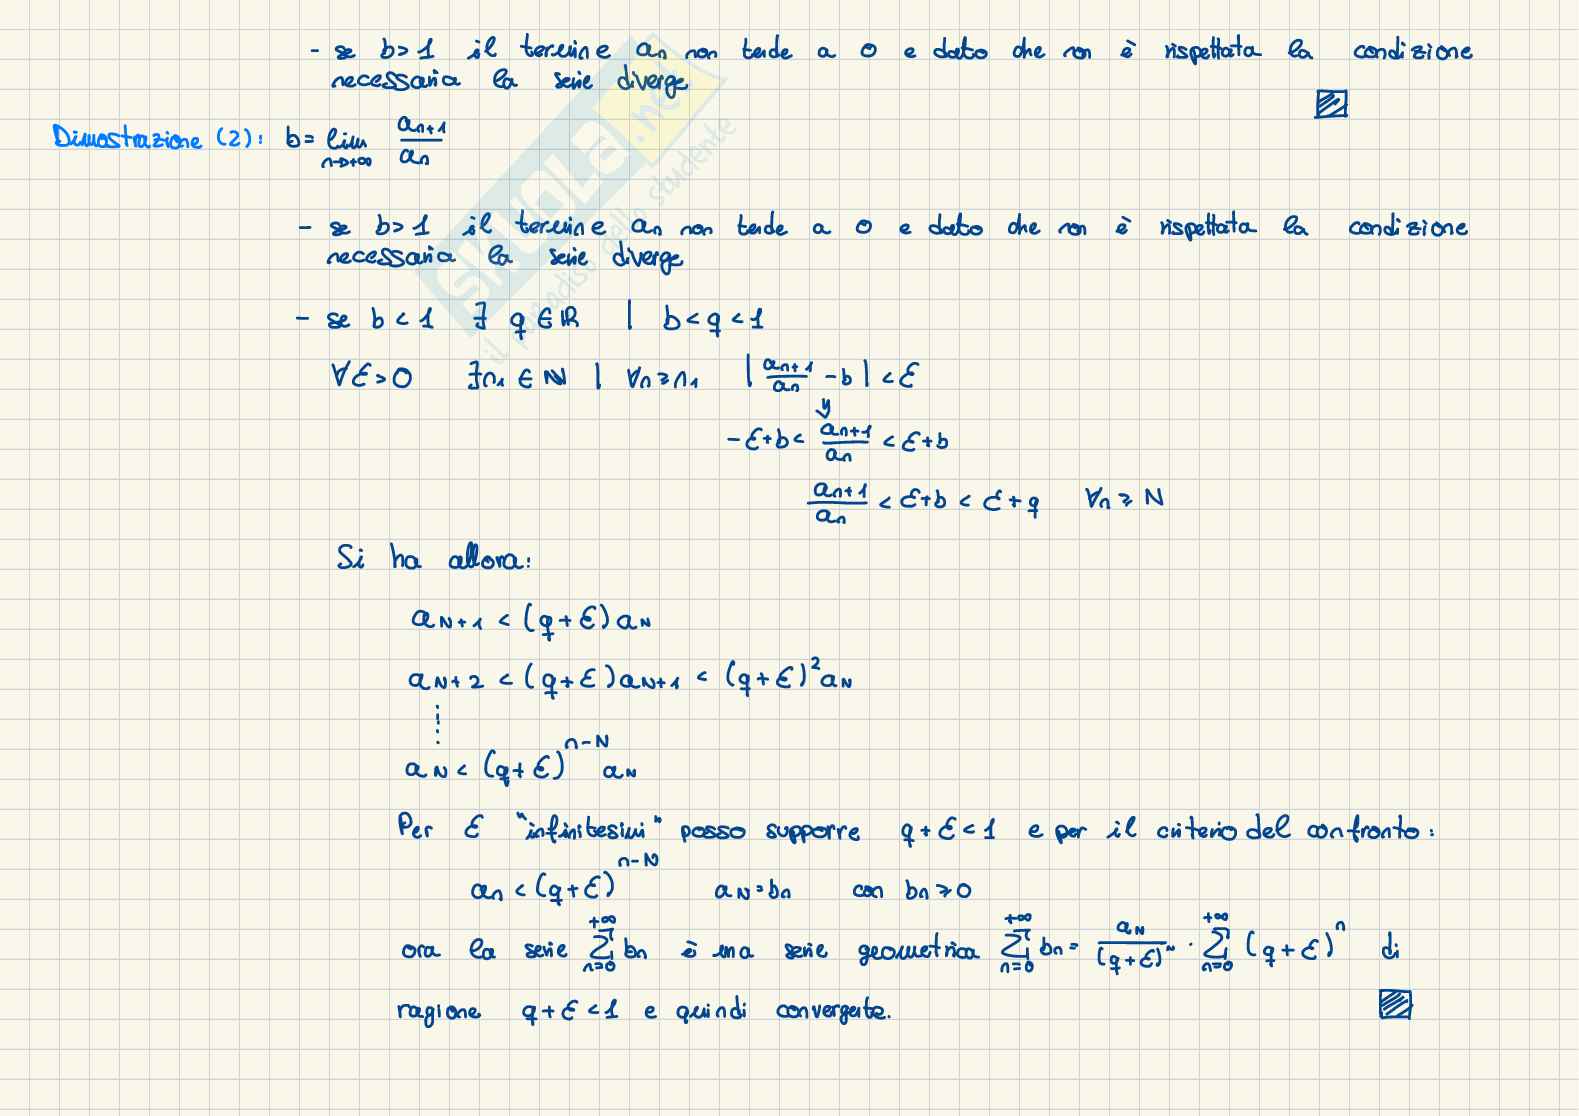 - se b>1 il termine aₙ non tende a 0 e dato che non è rispettata la condizione
necessaria la serie diverge
Dimostrazione (2): b = lim n→+∞ aₙ₊₁/aₙ
- se b>1 il termine aₙ non tende a 0 e dato che non è rispettata la condizione
necessaria la serie diverge
- se b<1 ∃ q ∈ ℝ | b<q<1
∀ε>0 ∃n₁ ∈ ℕ | ∀n≥n₁ |aₙ₊₁/aₙ - b| < ε
-ε+b < aₙ₊₁/aₙ < ε+b
aₙ₊₁/aₙ < ε+b < ε+q ∀n ≥ N
Si ha allora:
a_{N+1} < (q+ε) a_N
a_{N+2} < (q+ε) a_{N+1} < (q+ε)² a_N
⋮
a_N < (q+ε)^{n-N} a_N
Per ε "infinitesimi" posso supporre q+ε<1 e per il criterio del confronto:
aₙ < (q+ε)^{n-N} a_N = bₙ con bₙ ≥ 0
ora la serie ∑_{n=0}^{+∞} bₙ è una serie geometrica ∑_{n=0}^{+∞} bₙ = a_N/(q+ε)^N · ∑_{n=0}^{+∞} (q+ε)^n di
ragione q+ε<1 e quindi convergente.
SKUOLA.net
il paradiso dello studente